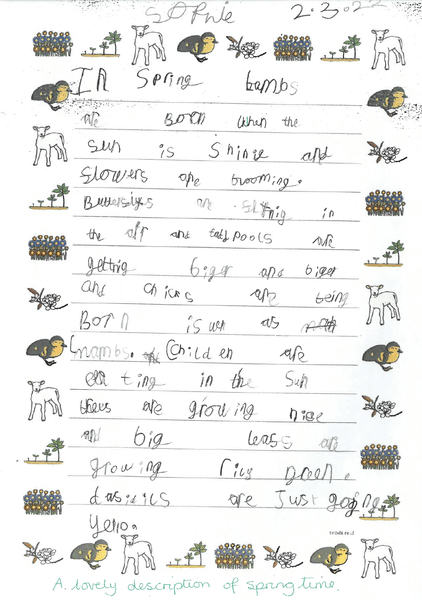 SOPhie 2.3.22
IN Spring Lambs
are BOrn when the
sun is Shinie and
flowers are blooming.
Butterslys are flttnig in
the air and tadpools are
getting biger and biger
and Chicks are being
BOrn as
Lambs. Children are
in the Sun
are growing nice
and big leass are
growing green.
dasisics are Just going
Yelo.
twinkl.co.uk
A lovely description of springtime.